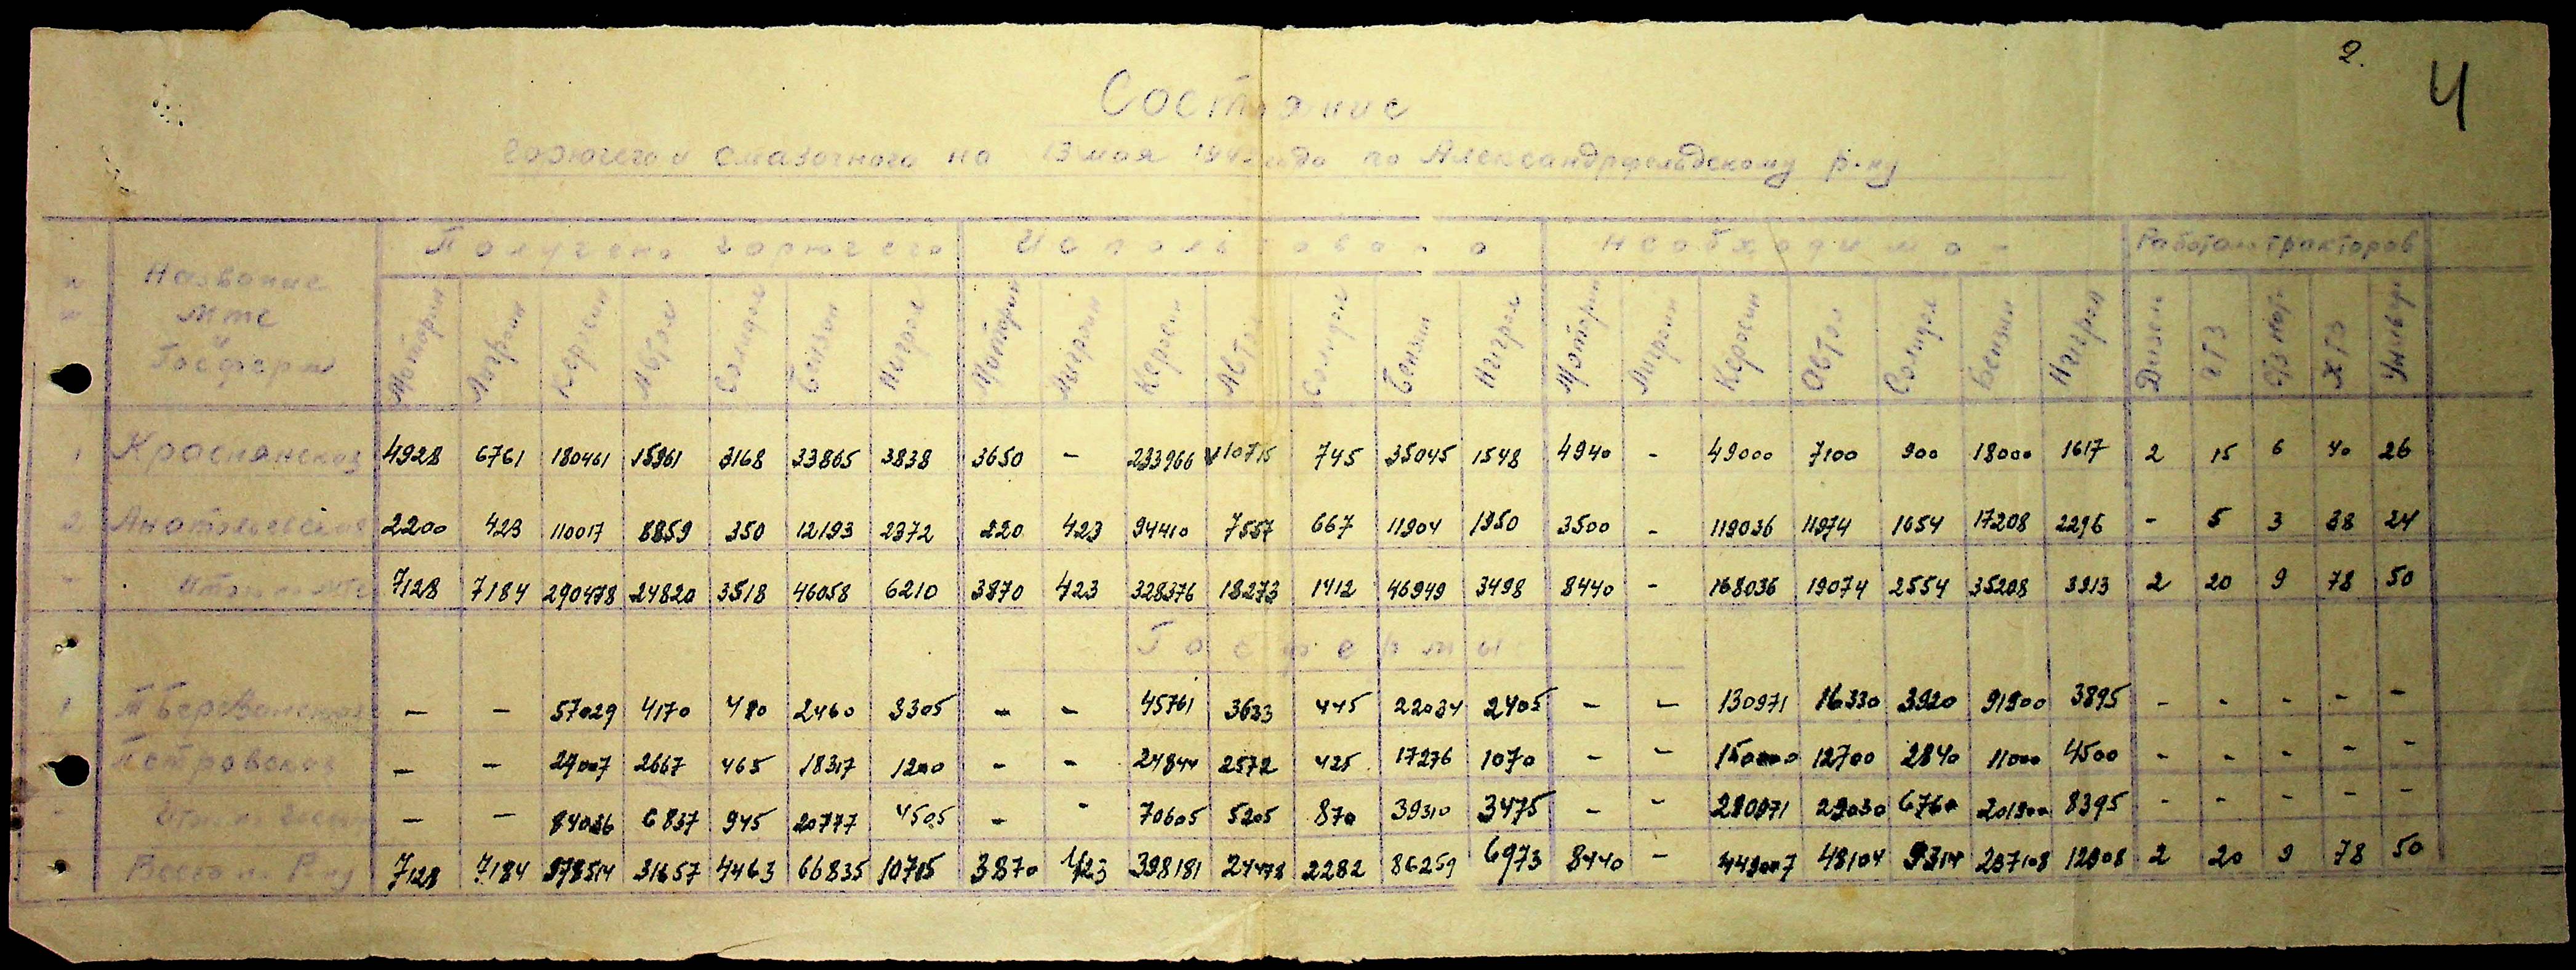 2.
4
Состояние
горючего и смазочного на 13 мая по Александрфельдскому р-ну
Название Мтс и Госферм
Получено горючего Использовано Необходимо - Работали тракторов
Моторин Лигроин Керосин Автол Солидол Бензин Нигрол Моторин Лигроин Керосин Автол Солидол Бензин Нигрол Моторин Лигроин Керосин Автол Солидол Бензин Нигрол Дизел ЧТЗ ХТЗ Универ
1 Краснянская 4928 6761 180461 15961 3168 33865 3838 3650 - 233966 10715 745 35045 1548 4940 - 49000 7100 900 18000 1617 2 15 6 40 26
2 Анатольевская 2200 423 110017 8859 350 12193 2372 220 423 94410 7557 667 11904 1950 3500 - 119036 11974 1654 17208 2296 - 5 3 38 24
Итого по мтс 7128 7184 290478 24820 3518 46058 6210 3870 423 328376 18273 1412 46949 3498 8440 - 168036 19074 2554 35208 3913 2 20 9 78 50
Госфермы
1 - - 57029 4170 480 2460 3305 - - 45761 3633 445 22034 2405 - - 130971 16330 3920 91900 3895 - - - - -
Петровская - - 27007 2667 465 18317 1200 - - 24844 2572 425 17276 1070 - - 150000 12700 2840 11000 4500 - - - - -
- - 84036 6837 945 20777 4505 - - 70605 5205 870 39310 3475 - - 29030 6760 8395 - - - - -
Всего по Р-ну 7128 7184 31657 4463 66835 10715 3870 423 398181 24478 2282 86259 6973 8440 - 48104 9314 2 20 9 78 50